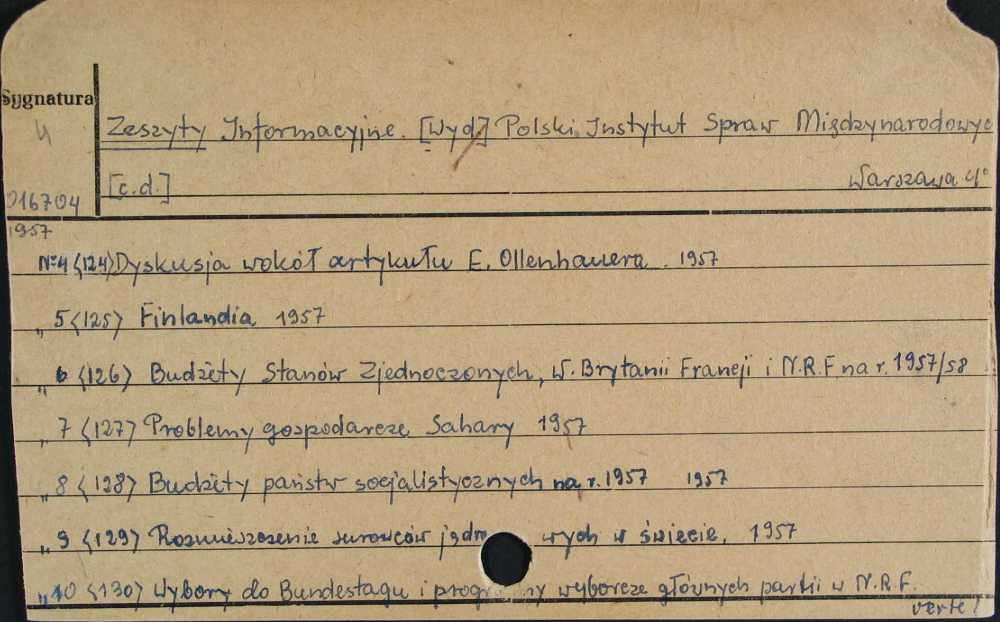 Sygnatura
4
Zeszyty Informacyjne. [Wyd] Polski Instytut Spraw Międzynarodowyc
[c.d.] Warszawa 4°
016704
1957
№4 (124) Dyskusja wokół artykułu E. Ollenhauera. 1957
„ 5 (125) Finlandia 1957
„ 6 (126) Budżety Stanów Zjednoczonych, W. Brytanii Francji i N.R.F. na r. 1957/58
„ 7 (127) Problemy gospodarcze Sahary 1957
„ 8 (128) Budżety państw socjalistycznych na r. 1957 1957
„ 9 (129) Rozmieszczenie surowców jądro wych w świecie. 1957
„ 10 (130) Wybory do Bundestagu i programy wyborcze głównych partii w N.R.F.
verte!